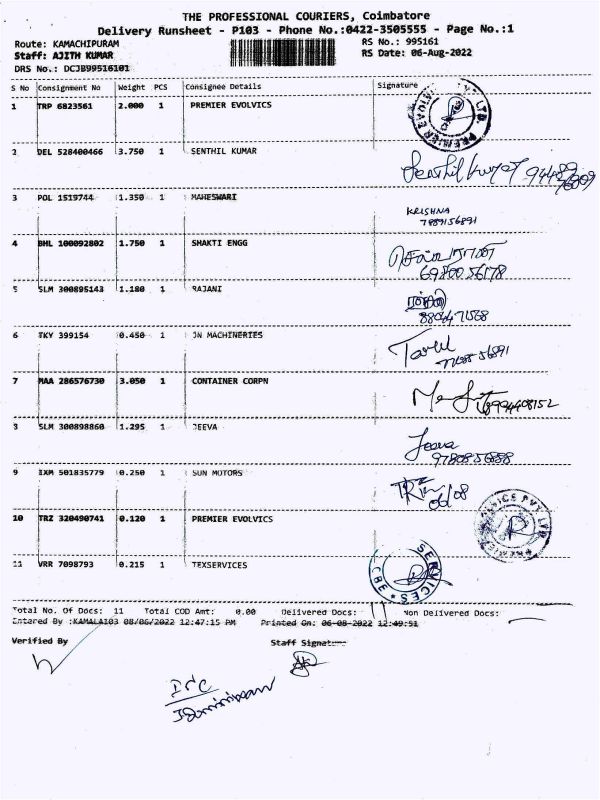 THE PROFESSIONAL COURIERS, Coimbatore
Delivery Runsheet - P103 - Phone No.:0422-3505555 - Page No.:1
Route: KAMACHIPURAM RS No.: 995161
Staff: AJITH KUMAR RS Date: 06-Aug-2022
DRS No.: DCJB99516101
S No Consignment No Weight PCS Consignee Details Signature
1 TRP 6823561 2.000 1 PREMIER EVOLVICS
2 DEL 528400466 3.750 1 SENTHIL KUMAR
3 POL 1519744 1.350 1 MAHESWARI
KRISHNA
7889156891
4 BHL 100092802 1.750 1 SHAKTI ENGG
6980056178
5 SLM 300895143 1.180 1 RAJANI
6 TKY 399154 0.450 1 JN MACHINERIES
7 MAA 286576730 3.050 1 CONTAINER CORPN
8 SLM 300898860 1.295 1 JEEVA
Jeeva
9780856898
9 IXM 501835779 0.250 1 SUN MOTORS
06/08
10 TRZ 320490741 0.120 1 PREMIER EVOLVICS
11 VRR 7098793 0.215 1 TEXSERVICES
SERVICES
CBE
Total No. Of Docs: 11 Total COD Amt: 0.00 Delivered Docs: 11 Non Delivered Docs:
Entered By :KAMALA103 08/06/2022 12:47:15 PM Printed On: 06-08-2022 12:49:51
Verified By Staff Signature